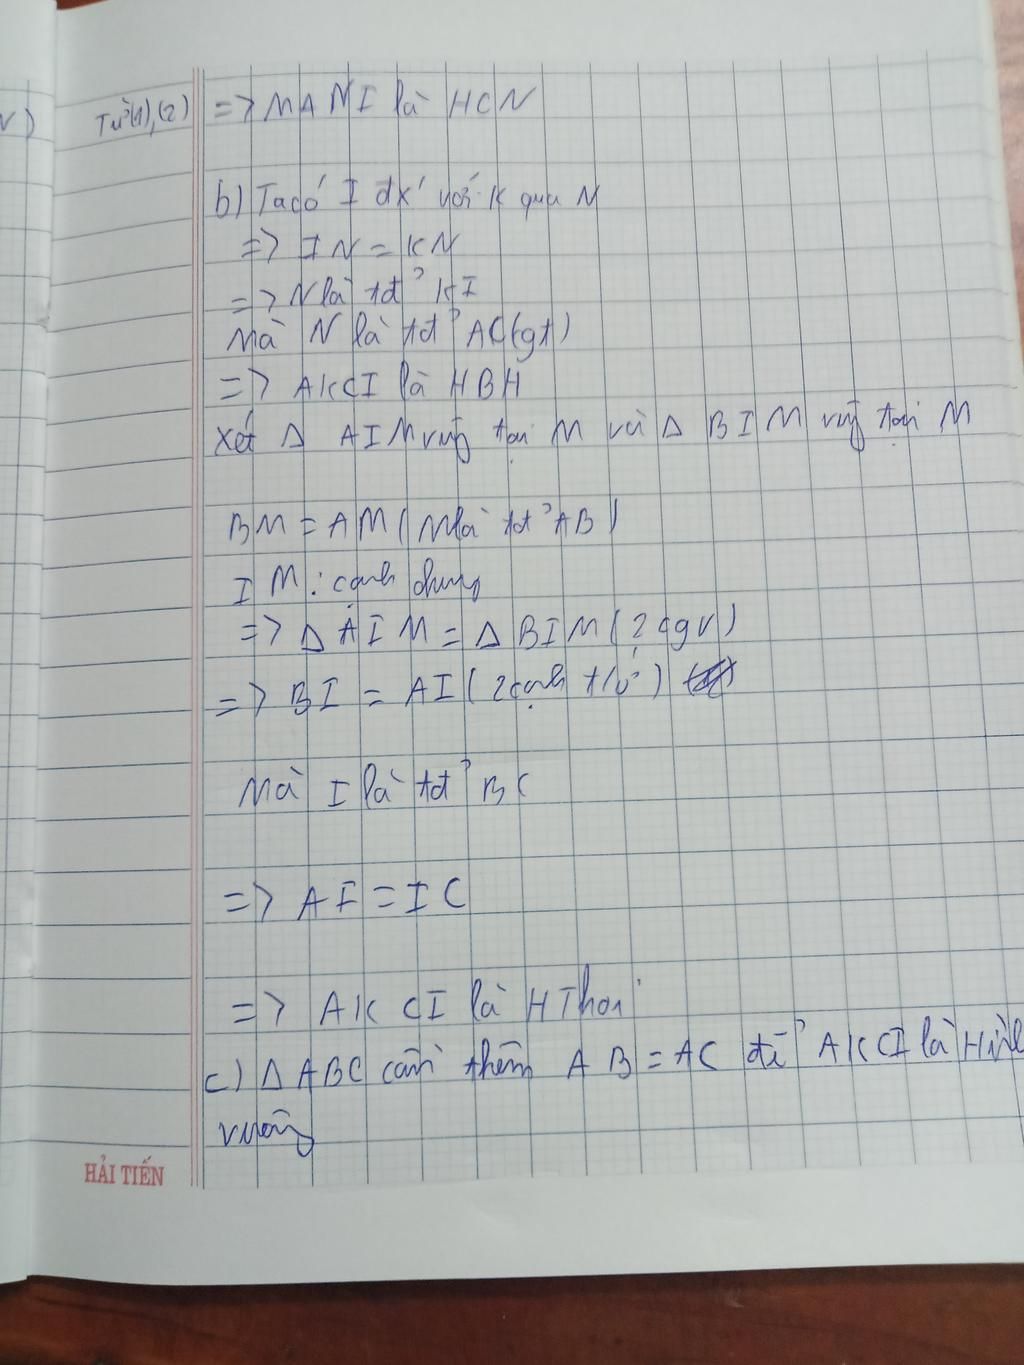 Từ (1), (2) => MANI là HCN
b) Ta có I đx' với K qua N
=> IN = KN
=> N là tđ' KI
Mà N là tđ' AC (gt)
=> AKCI là HBH
Xét Δ AIM vuông tại M và Δ BIM vuông tại M
BM = AM (M là tđ' AB)
IM: cạnh chung
=> Δ AIM = Δ BIM (2 cgv)
=> BI = AI (2 cạnh t/ứ')
Mà I là tđ' BC
=> AI = IC
=> AKCI là H Thoi
c) Δ ABC cần thêm AB = AC để AKCI là Hình
vuông
HẢI TIẾN